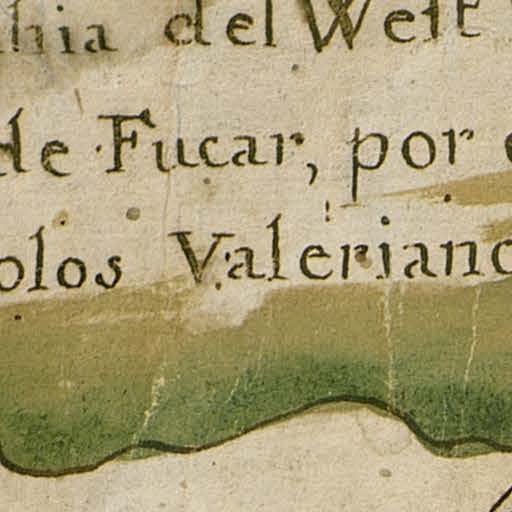 hia del West
de Fucar, por e
olos Valeriano